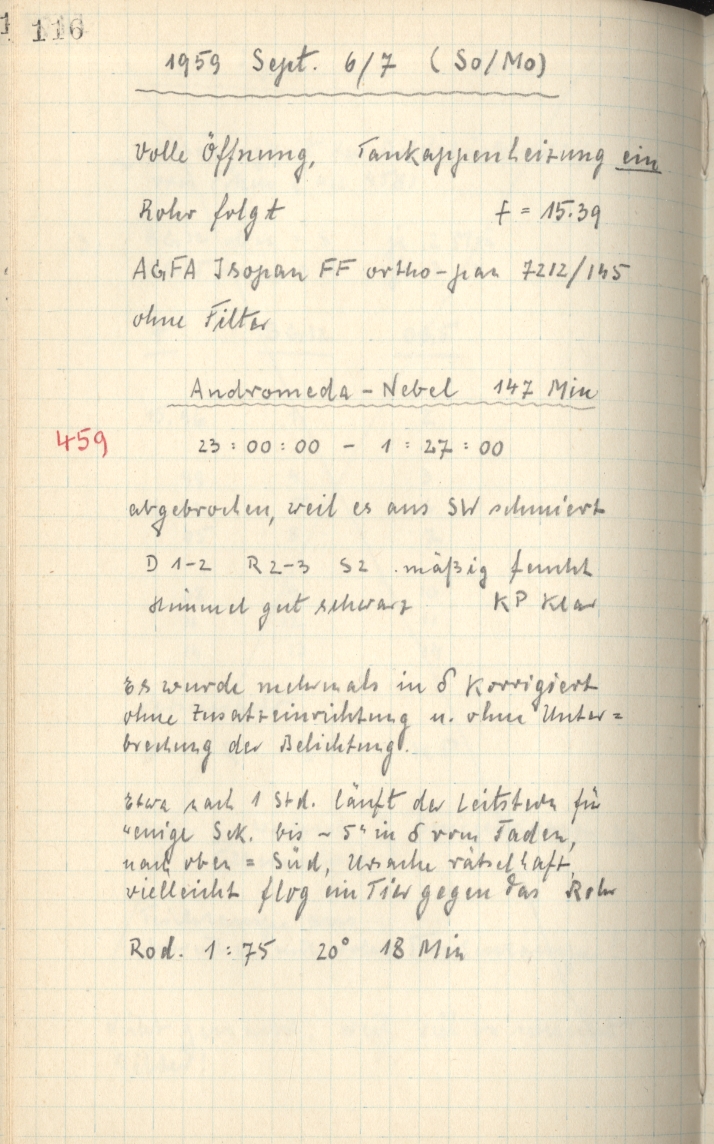 116
1959 Sept. 6/7 (So/Mo)
Volle Öffnung, Taukappenheizung ein
Rohr folgt f = 15.39
AGFA Isopan FF ortho-pan 7212/145
ohne Filter
Andromeda-Nebel 147 Min
459 23:00:00 - 1:27:00
abgebrochen, weil es aus SW schmiert
D 1-2 R 2-3 S 2 mäßig feucht
Himmel gut schwarz KP Klar
Es wurde mehrmals in δ Korrigiert
ohne Zusatzeinrichtung u. ohne Unter=
brechung der Belichtung.
Etwa nach 1 Std. läuft der Leitstern für
wenige Sek. bis ~ 5" in δ vom Faden,
nach oben = Süd, Ursache rätselhaft,
vielleicht flog ein Tier gegen das Rohr
Rod. 1:75 20° 18 Min